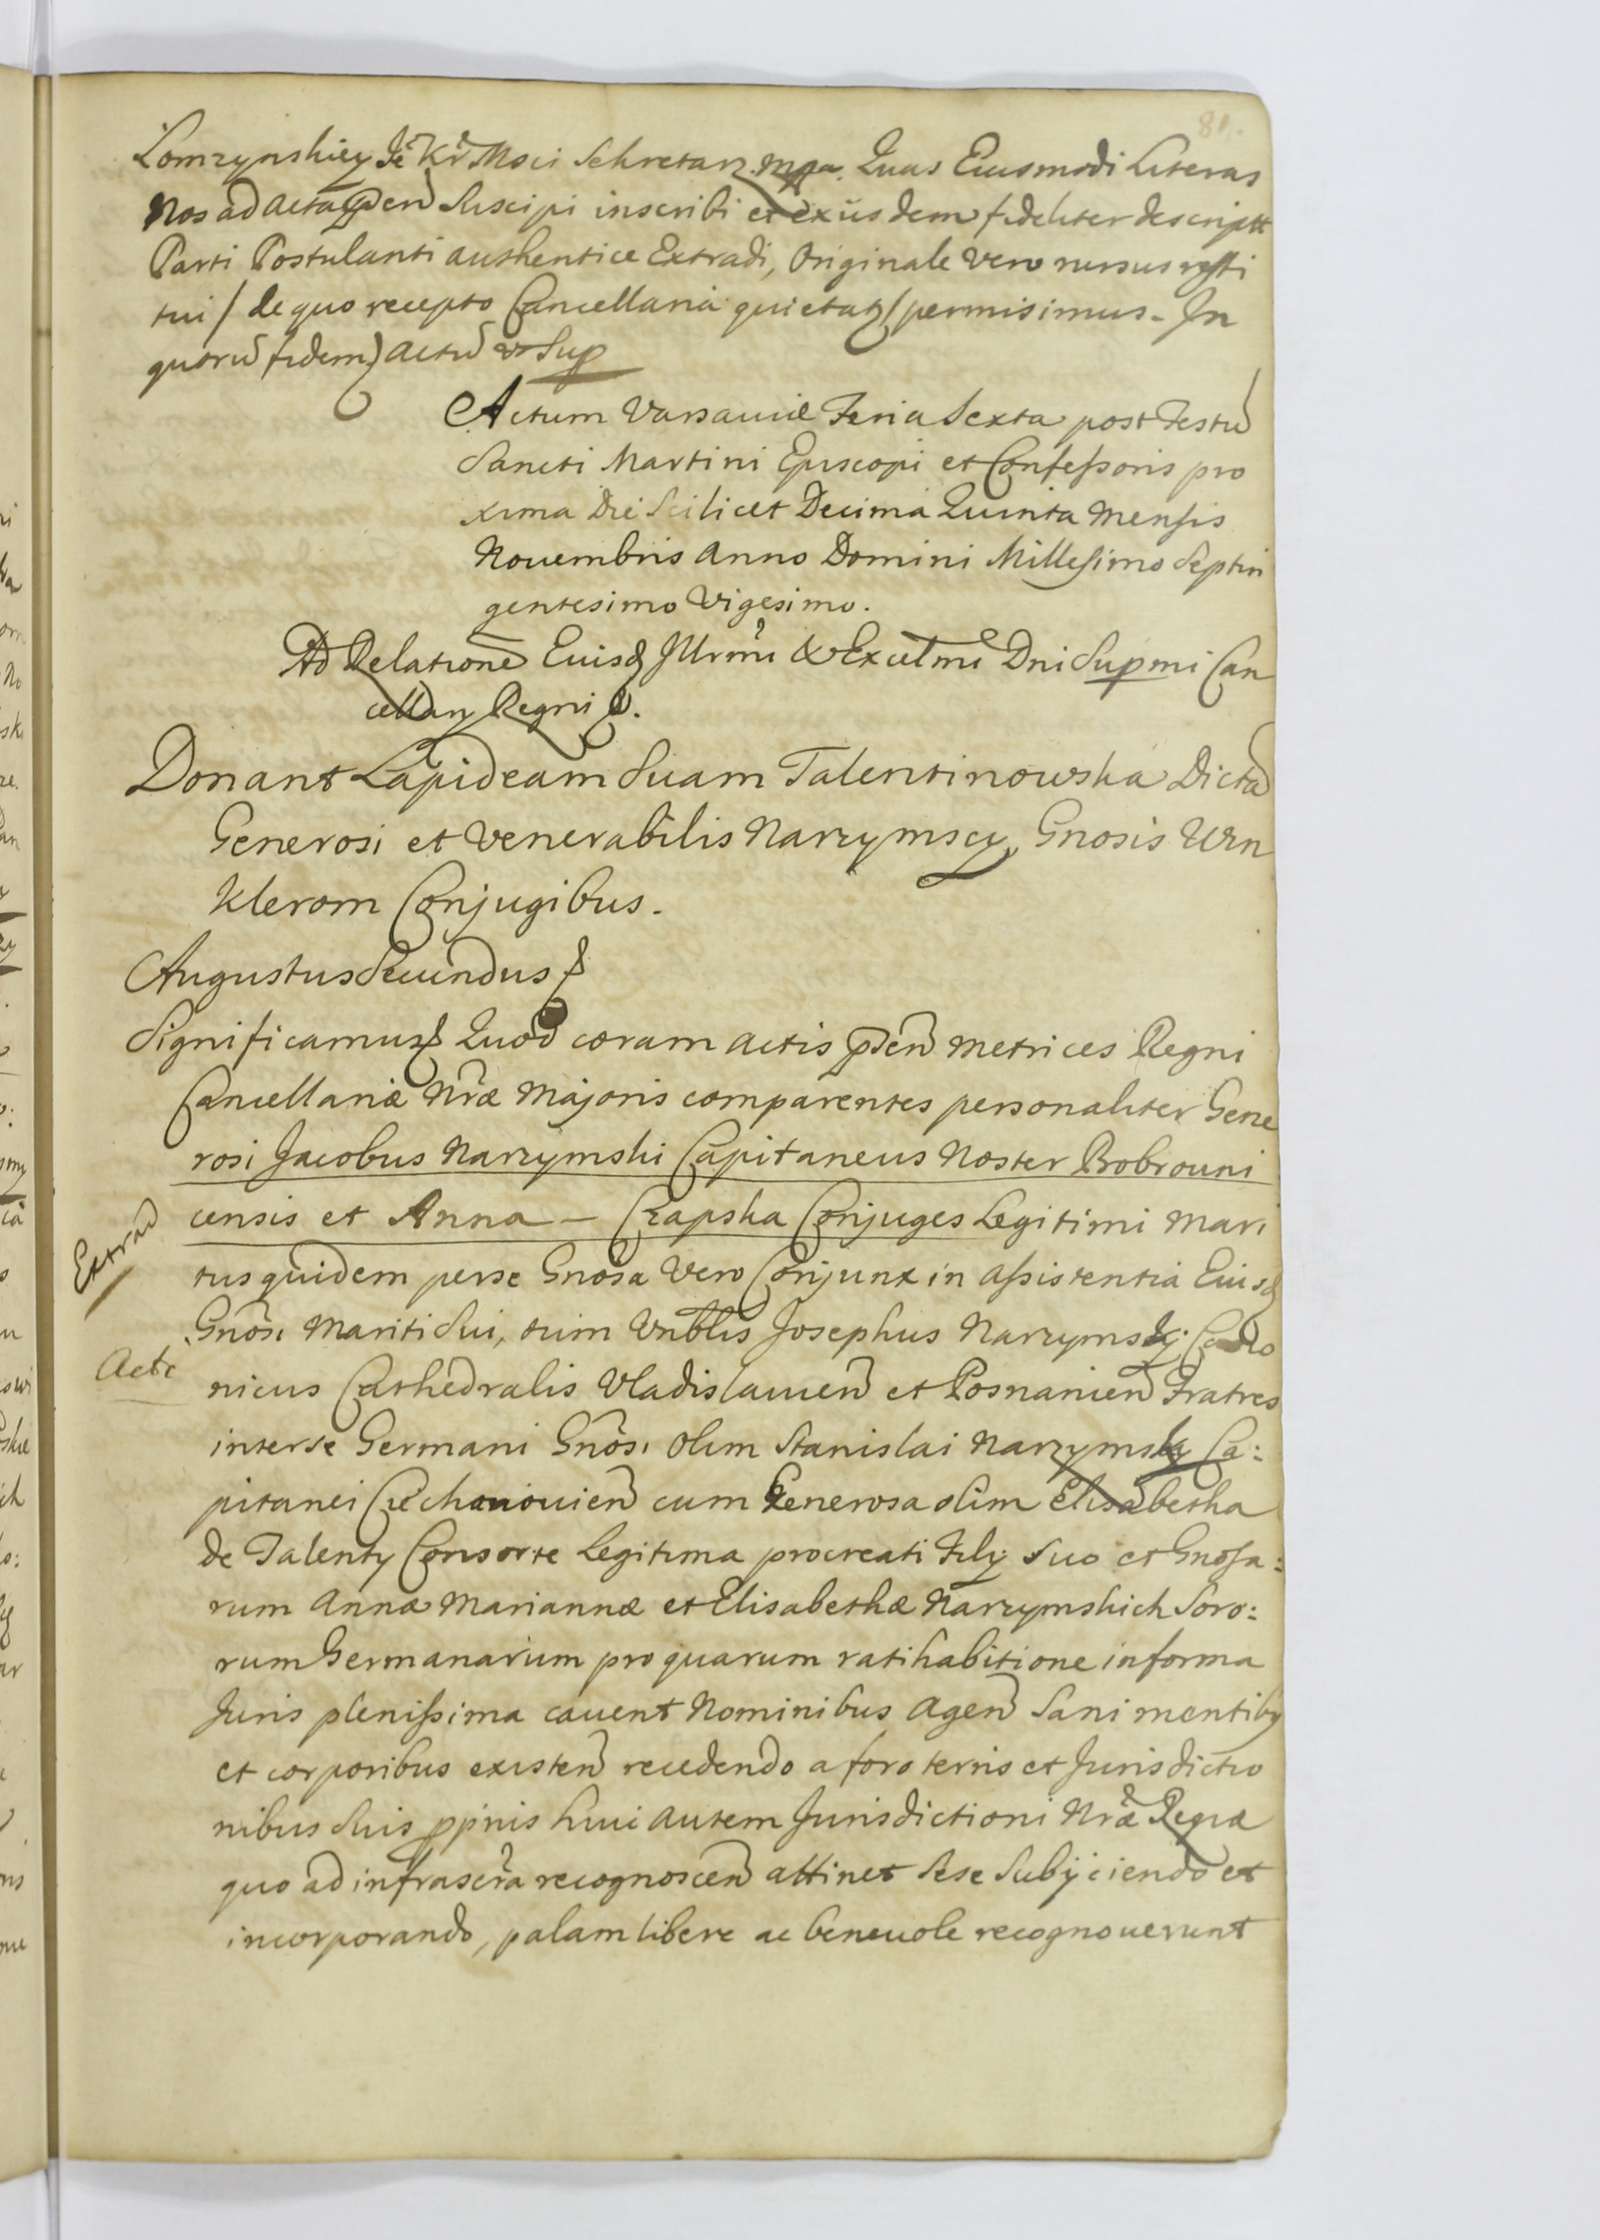 81.
Lomzynskiey Jě Kr̃ Mści Sekretarz mpa. Quas Eiusmodi Literas
Nos ad acta p̃sen̄ Suscipi inscribi et ex iisdem fideliter descriptt
Parti Postulanti authentice Extradi, Originale Vero rursus resti
tui / de quo recepto Cancellaria quietatꝫ / permisimus. In
quorū fidem) Actū vt Sup
Actum Varsaviæ Feria Sexta post Festū
Sancti Martini Episcopi et Confessoris pro
xima Die Scilicet Decima Quinta Mensis
Nouembris Anno Domini Millesimo Septin
gentesimo Vigesimo.
Ad Relationē Eiusd Illrmi & Excelmi Dni Supmi Can
cellarij Regni
Donant Lapideam Suam Talentinowska Dictā
Generosi et Venerabilis Narzymscy, Gnosis Win
klerom Conjugibus.
Augustus Secundus
Significamus Quod coram actis p̃sen̄ Metrices Regni
Cancellariæ Nr̃æ Majoris comparentes personaliter Gene
rosi Jacobus Narzymski Capitaneus Noster Bobrouni
censis et Anna — Czapska Conjuges Legitimi Mari
tus quidem perse Gnosa Vero Conjunx in assistentia Eiusd
Extrad
Gnosi Mariti Sui, tum Vnblis Josephus Narzymsky Cano
Acte
nicus Cathedralis Vladislauien̄ et Posnanien̄ Fratres
interse Germani Gnosi olim Stanislai Narzymsky Ca:
pitanei Ciechanouien̄ cum Generosa olim Elisabetha
de Talenty Consorte Legitima procreati Filij suo et Gnosa:
rum Annæ Mariannæ et Elisabethæ Narzymskich Soro:
rum Germanarum pro quarum ratihabitione in forma
Juris plenissima cauent Nominibus agen̄ Sani mentibꝫ
et corporibus existen̄ recedendo a foro terris et Jurisdictio
nibus Suis ppriis huic autem Jurisdictioni Nr̃æ Regiæ
quo ad infrascr̃a recognoscen̄ attinet Sese Subijciendo et
incorporando, palam libere ac beneuole recognouerunt